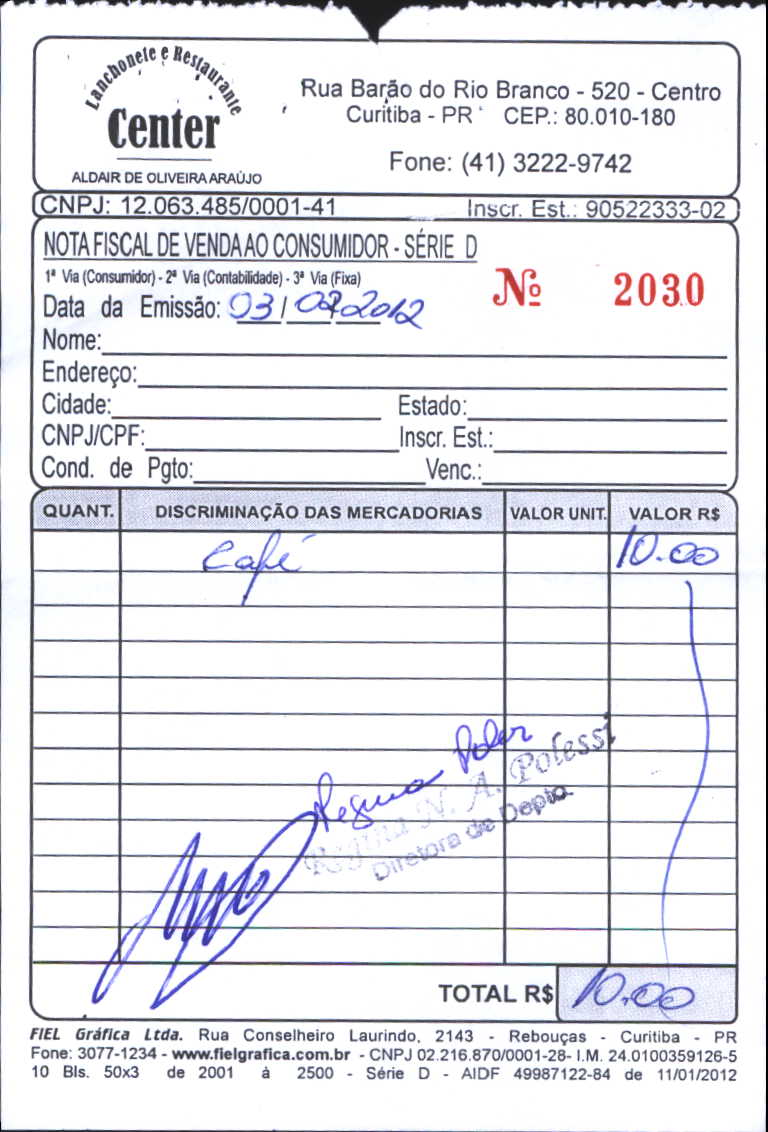 Lanchonete e Restaurante
Center
ALDAIR DE OLIVEIRA ARAÚJO
Rua Barão do Rio Branco - 520 - Centro
Curitiba - PR CEP.: 80.010-180
Fone: (41) 3222-9742
CNPJ: 12.063.485/0001-41 Inscr. Est.: 90522333-02
NOTA FISCAL DE VENDA AO CONSUMIDOR - SÉRIE D
1ª Via (Consumidor) - 2ª Via (Contabilidade) - 3ª Via (Fixa)
Nº 2030
Data da Emissão: 03/02/2012
Nome:
Endereço:
Cidade: Estado:
CNPJ/CPF: Inscr. Est.:
Cond. de Pgto: Venc.:
QUANT. DISCRIMINAÇÃO DAS MERCADORIAS VALOR UNIT. VALOR R$
Café 10.00
Regina
Regina N. A. Polessi
Diretora de Depto.
TOTAL R$ 10.00
FIEL Gráfica Ltda. Rua Conselheiro Laurindo, 2143 - Rebouças - Curitiba - PR
Fone: 3077-1234 - www.fielgrafica.com.br - CNPJ 02.216.870/0001-28- I.M. 24.0100359126-5
10 Bls. 50x3 de 2001 à 2500 - Série D - AIDF 49987122-84 de 11/01/2012